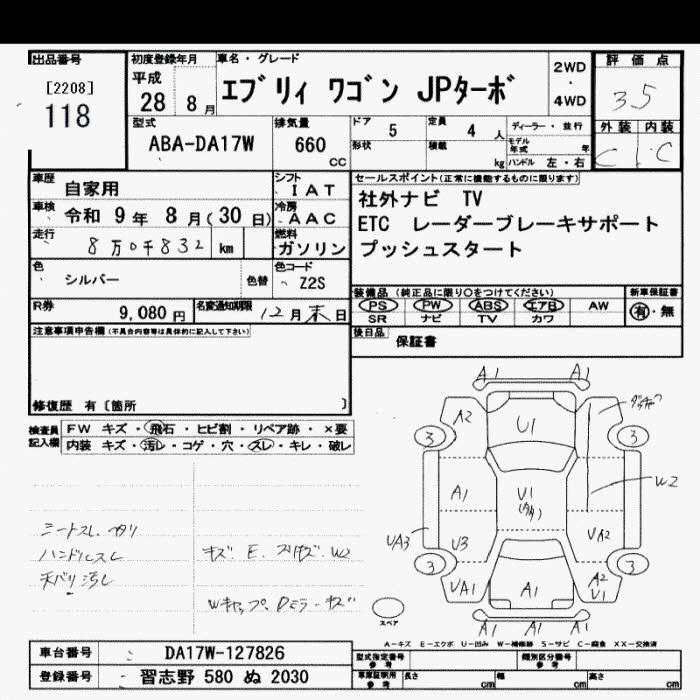 出品番号
[2208]
118
初度登録年月
平成
28 年 8 月
車名・グレード
エブリィ ワゴン JPターボ
2WD
・
4WD
評価点
3.5
外装 内装
C C
型式
ABA-DA17W
排気量
660
CC
ドア 5
形状
定員 4 人
積載 kg
ディーラー・並行
モデル年式 年
ハンドル 左・右
車歴 自家用
シフト IAT
車検 令和 9 年 8 月(30 日)
冷房 AAC
走行 8万0千832 km
燃料 ガソリン
色 シルバー 色替
色コード Z2S
R券 9,080 円
名変通知期限 12月末日
セールスポイント(正常に機能するものに限ります)
社外ナビ TV
ETC レーダーブレーキサポート
プッシュスタート
装備品 (純正品に限り○をつけてください)
PS PW ABS エアB AW
SR ナビ TV カワ
新車保証書
有・無
後日品 保証書
注意事項申告欄(不具合内容等は具体的に記入して下さい)
修復歴 有〔箇所 〕
検査員記入欄
FW キズ・飛石・ヒビ割・リペア跡・×要
内装 キズ・汚レ・コゲ・穴・スレ・キレ・破レ
シートスレ
ハンドルスレ
天バリ汚レ
キズ E. W2
Wキャップ. Dミラーキズ
A1 A1
A2 U1
3 3
A1 U1 W2
UA3 U3 UA2
3 3
UA1 A1 A2
U1
A1 A1 A1
スペア
A-キズ E-エクボ U-凹み W-補修跡 S-サビ C-腐食 XX-交換済
車台番号 DA17W-127826
登録番号 習志野 580 ぬ 2030
型式指定番号
参考
類別区分番号
参考
車庫証明用
参考
長さ cm 幅 cm 高さ cm